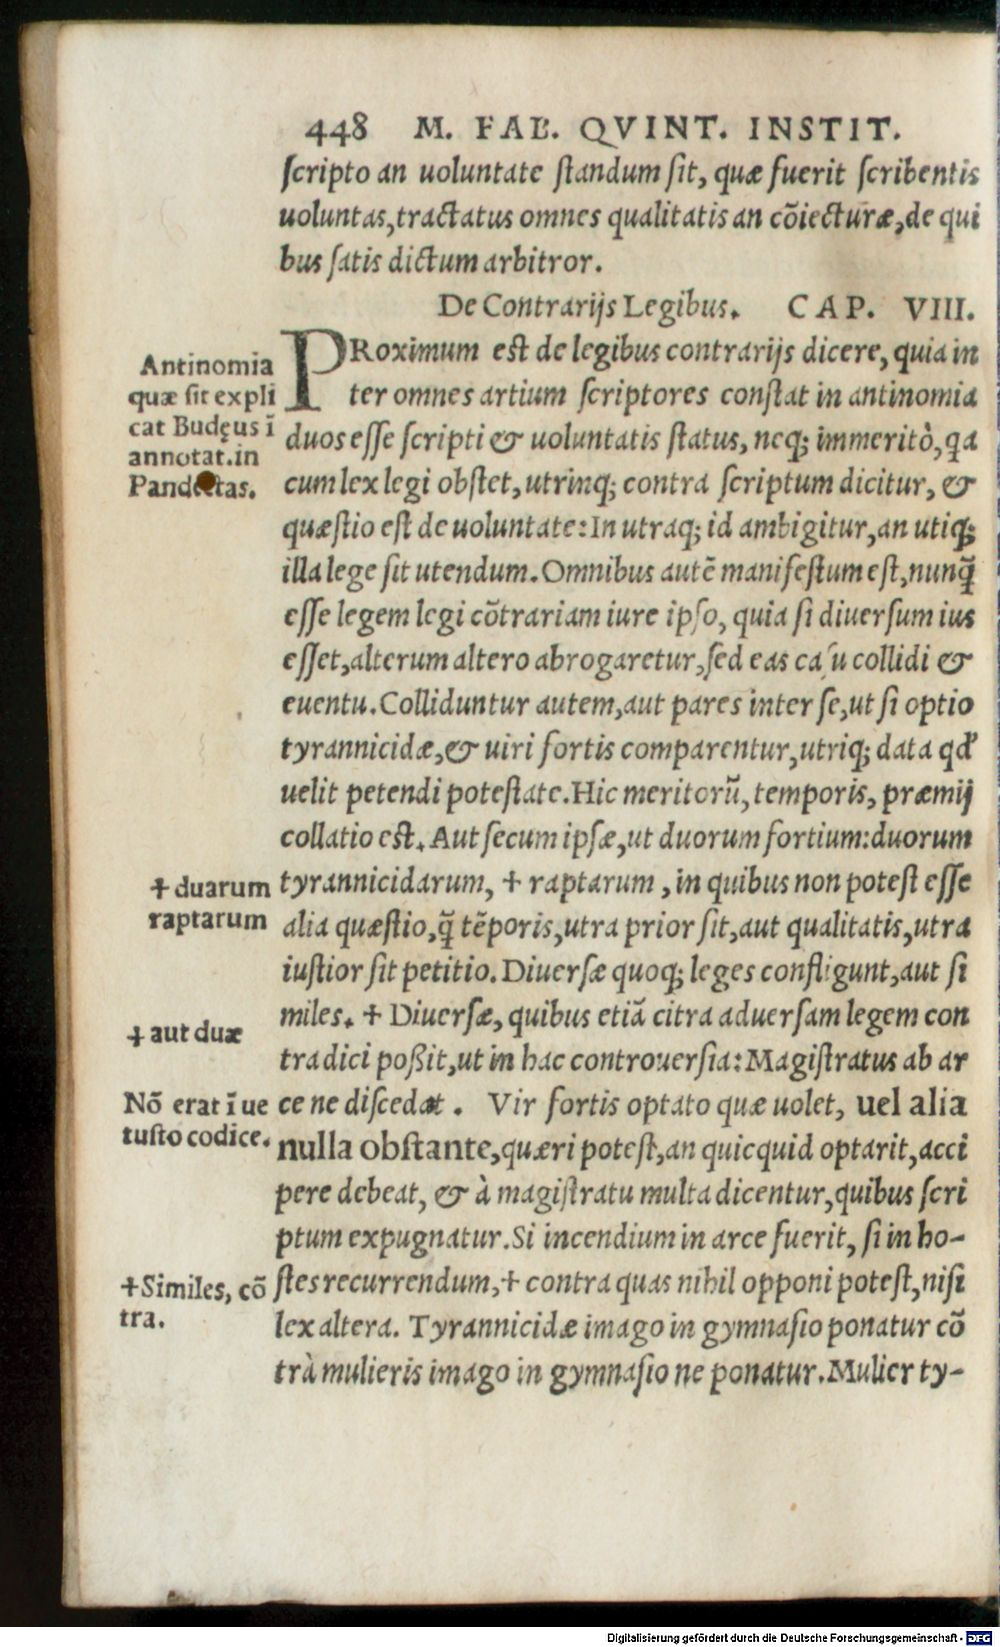 448 M. FAB. QVINT. INSTIT.
scripto an uoluntate standum sit, quæ fuerit scribentis
uoluntas, tractatus omnes qualitatis an cōiecturæ, de qui
bus satis dictum arbitror.
De Contrarijs Legibus. CAP. VIII.
PRoximum est de legibus contrarijs dicere, quia in
ter omnes artium scriptores constat in antinomia
duos esse scripti & uoluntatis status, neq; immeritò, qa
cum lex legi obstet, utrinq; contra scriptum dicitur, &
quæstio est de uoluntate: In utraq; id ambigitur, an utiq;
illa lege sit utendum. Omnibus autē manifestum est, nunq̃
esse legem legi cōtrariam iure ipso, quia si diuersum ius
esset, alterum altero abrogaretur, sed eas casu collidi &
euentu. Colliduntur autem, aut pares inter se, ut si optio
tyrannicidæ, & uiri fortis comparentur, utriq; data qd'
uelit petendi potestate. Hic meritorũ, temporis, præmij
collatio est. Aut secum ipsæ, ut duorum fortium: duorum
tyrannicidarum, ✝ raptarum, in quibus non potest esse
alia quæstio, q̃ tēporis, utra prior sit, aut qualitatis, utra
iustior sit petitio. Diuersæ quoq; leges confligunt, aut si
miles. ✝ Diuersæ, quibus etiā citra aduersam legem con
tradici poßit, ut in hac controuersia: Magistratus ab ar
ce ne discedat. Vir fortis optato quæ uolet, uel alia
nulla obstante, quæri potest, an quicquid optarit, acci
pere debeat, & à magistratu multa dicentur, quibus scri
ptum expugnatur. Si incendium in arce fuerit, si in ho-
stes recurrendum, ✝ contra quas nihil opponi potest, nisi
lex altera. Tyrannicidæ imago in gymnasio ponatur cō
trà mulieris imago in gymnasio ne ponatur. Mulier ty-
Antinomia
quæ sit expli
cat Budęus ī
annotat. in
Pandectas.
✝ duarum
raptarum
✝ aut duæ
Nō erat ī ue
tusto codice.
✝ Similes, cō
tra.
Digitalisierung gefördert durch die Deutsche Forschungsgemeinschaft - DFG